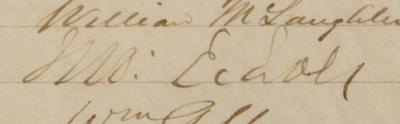 William McLaughlin
Jno. Echols
Wm